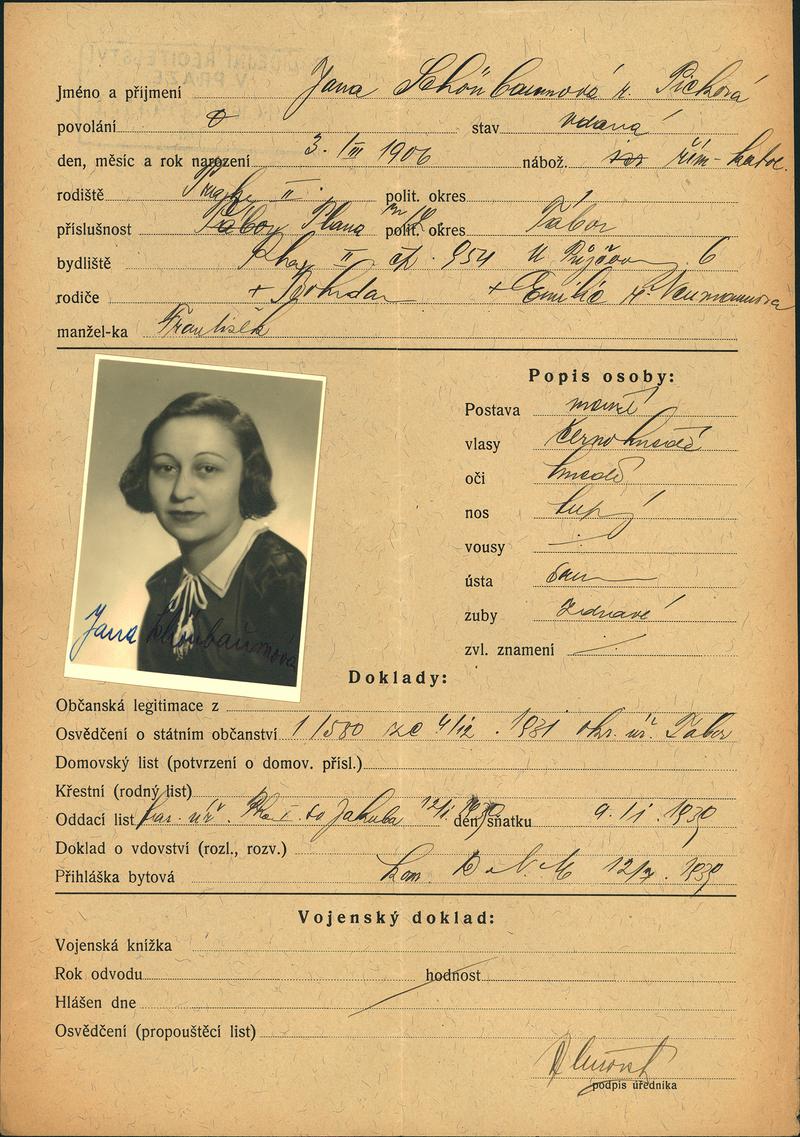 Jméno a příjmení Jana Schönbaumová r. Picková
povolání stav vdaná
den, měsíc a rok narození 3. III 1906 nábož. řím-katol.
rodiště Praha II. polit. okres
příslušnost Tábor Planá n/L polit. okres Tábor
bydliště Praha II čp. 954 U Půjčovny 6
rodiče + Bohdan + Emilie r. Neumannová
manžel-ka František
Popis osoby:
Postava menší
vlasy černohnědé
oči hnědé
nos tupý
vousy
ústa
zuby zdravé
zvl. znamení
Jana Schönbaumová
Doklady:
Občanská legitimace z
Osvědčení o státním občanství 1/580 ze 4/12. 1931 okr. úř. Tábor
Domovský list (potvrzení o domov. přísl.)
Křestní (rodný list)
Oddací list far. úř. Praha I sv Jakuba 12/II. 1939 den sňatku 9. II. 1939
Doklad o vdovství (rozl., rozv.)
Přihláška bytová kom. 1939
Vojenský doklad:
Vojenská knížka
Rok odvodu hodnost
Hlášen dne
Osvědčení (propouštěcí list)
podpis úředníka